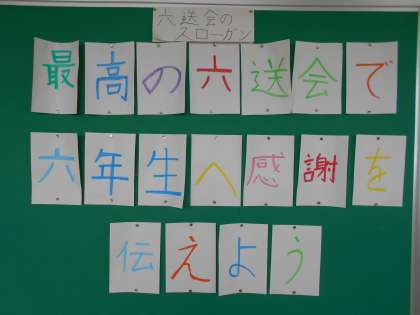 六送会の
スローガン
最高の六送会で
六年生へ感謝を
伝えよう